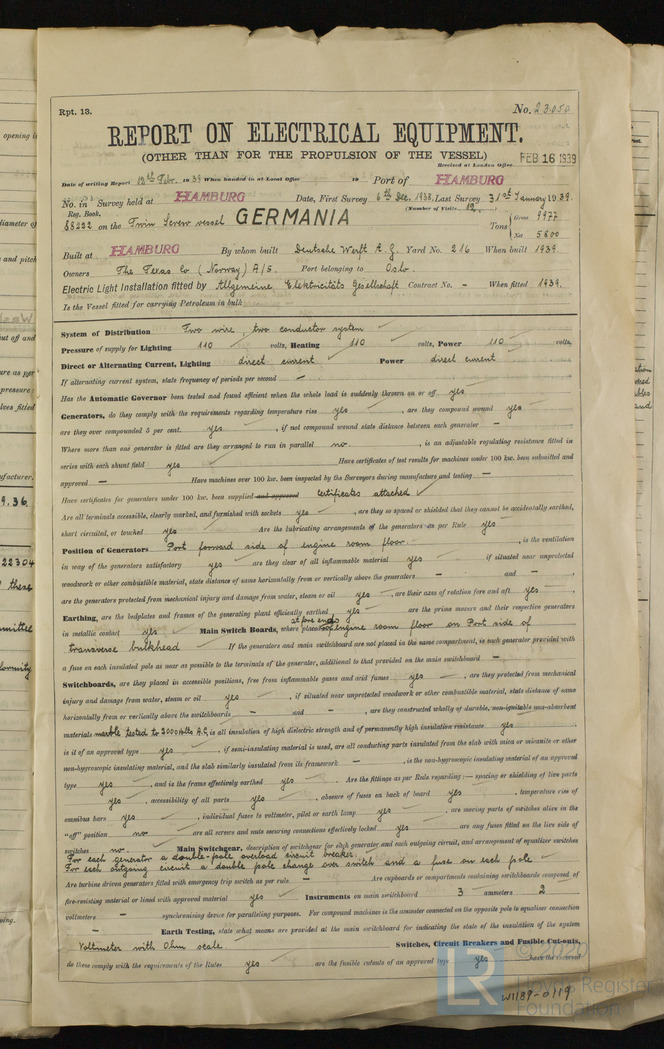 Rpt. 13.
No. 23050
REPORT ON ELECTRICAL EQUIPMENT.
(OTHER THAN FOR THE PROPULSION OF THE VESSEL)
Received at London Office FEB 16 1939
Date of writing Report 10th Febr. 1939 When handed in at Local Office 19 Port of HAMBURG
No. in Survey held at HAMBURG Date, First Survey 6th Dec. 1938, Last Survey 31st January 1939.
Reg. Book. (Number of Visits 12)
88232 on the Twin Screw vessel GERMANIA Tons Gross 9977
Net 5800
Built at HAMBURG By whom built Deutsche Werft A.G. Yard No. 216 When built 1939.
Owners The Texas Co (Norway) A/S. Port belonging to Oslo.
Electric Light Installation fitted by Allgemeine Elektricitäts Gesellschaft Contract No. - When fitted 1939.
Is the Vessel fitted for carrying Petroleum in bulk
System of Distribution Two wire, two conductor system
Pressure of supply for Lighting 110 volts, Heating 110 volts, Power 110 volts,
Direct or Alternating Current, Lighting direct current Power direct current
If alternating current system, state frequency of periods per second -
Has the Automatic Governor been tested and found efficient when the whole load is suddenly thrown on or off yes
Generators, do they comply with the requirements regarding temperature rise yes, are they compound wound yes
are they over compounded 5 per cent. yes, if not compound wound state distance between each generator -
Where more than one generator is fitted are they arranged to run in parallel no, is an adjustable regulating resistance fitted in
series with each shunt field yes Have certificates of test results for machines under 100 kw. been submitted and
approved - Have machines over 100 kw. been inspected by the Surveyors during manufacture and testing -
Have certificates for generators under 100 kw. been supplied and approved certificates attached
Are all terminals accessible, clearly marked, and furnished with sockets yes, are they so spaced or shielded that they cannot be accidentally earthed,
short circuited, or touched yes Are the lubricating arrangements of the generators as per Rule yes
Position of Generators Port forward side of engine room floor, is the ventilation
in way of the generators satisfactory yes are they clear of all inflammable material yes if situated near unprotected
woodwork or other combustible material, state distance of same horizontally from or vertically above the generators - and -,
are the generators protected from mechanical injury and damage from water, steam or oil yes, are their axes of rotation fore and aft yes,
Earthing, are the bedplates and frames of the generating plant efficiently earthed yes are the prime movers and their respective generators
in metallic contact yes Main Switch Boards, where placed at fore end of engine room floor on Port side of
transverse bulkhead If the generators and main switchboard are not placed in the same compartment, is each generator provided with
a fuse on each insulated pole as near as possible to the terminals of the generator, additional to that provided on the main switchboard -
Switchboards, are they placed in accessible positions, free from inflammable gases and acid fumes yes, are they protected from mechanical
injury and damage from water, steam or oil yes, if situated near unprotected woodwork or other combustible material, state distance of same
horizontally from or vertically above the switchboards - and -, are they constructed wholly of durable, non-ignitable non-absorbent
materials marble tested to 2000 Volts A.C, is all insulation of high dielectric strength and of permanently high insulation resistance yes
is it of an approved type yes, if semi-insulating material is used, are all conducting parts insulated from the slab with mica or micanite or other
non-hygroscopic insulating material, and the slab similarly insulated from its framework -, is the non-hygroscopic insulating material of an approved
type yes, and is the frame effectively earthed yes. Are the fittings as per Rule regarding:— spacing or shielding of live parts
yes, accessibility of all parts yes, absence of fuses on back of board yes, temperature rise of
omnibus bars yes, individual fuses to voltmeter, pilot or earth lamp yes, are moving parts of switches alive in the
"off" position no are all screws and nuts securing connections effectively locked yes are any fuses fitted on the live side of
switches no. Main Switchgear, description of switchgear for each generator and each outgoing circuit, and arrangement of equaliser switches
For each generator a double-pole overload circuit breaker.
For each outgoing circuit a double pole change over switch and a fuse on each pole
Are turbine driven generators fitted with emergency trip switch as per rule - Are cupboards or compartments containing switchboards composed of
fire-resisting material or lined with approved material yes Instruments on main switchboard 3 ammeters 2
voltmeters - synchronising device for paralleling purposes. For compound machines is the ammeter connected on the opposite pole to equaliser connection
- Earth Testing, state what means are provided at the main switchboard for indicating the state of the insulation of the system
Voltmeter with Ohm scale. Switches, Circuit Breakers and Fusible Cut-outs,
do these comply with the requirements of the Rules yes are the fusible cutouts of an approved type yes have the reversed
© 2020
LR
Lloyd's Register
Foundation
W1189-0119